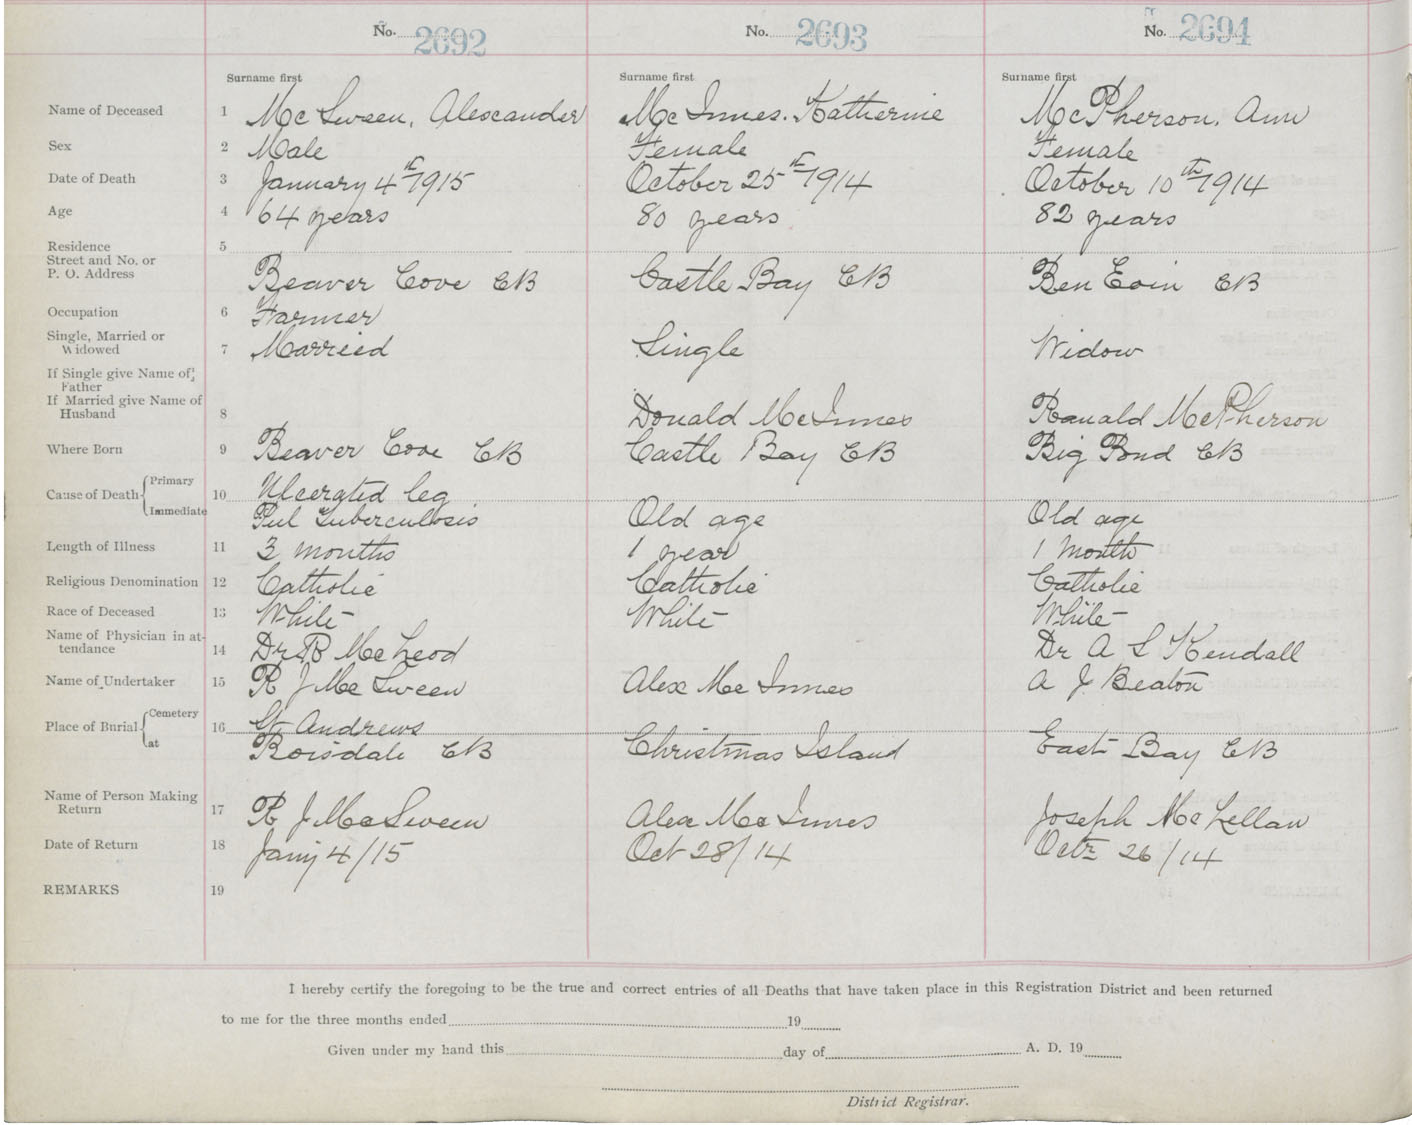 No. 2692 No. 2693 No. 2694
Surname first Surname first Surname first
Name of Deceased 1 McSween, Alexcander McInnes. Katherine McPherson, Ann
Sex 2 Male Female Female
Date of Death 3 January 4th 1915 October 25th 1914 October 10th 1914
Age 4 64 years 80 years 82 years
Residence 5
Street and No. or
P. O. Address Beaver Cove CB Castle Bay CB Ben Eoin CB
Occupation 6 Farmer
Single, Married or
Widowed 7 Married Single Widow
If Single give Name of
Father
If Married give Name of
Husband 8 Donald McInnes Ranald McPherson
Where Born 9 Beaver Cove CB Castle Bay CB Big Pond CB
Cause of Death Primary 10 Ulcerated leg
Immediate Pul Tuberculosis Old age Old age
Length of Illness 11 3 months 1 year 1 month
Religious Denomination 12 Catholic Catholic Catholic
Race of Deceased 13 White White White
Name of Physician in at-
tendance 14 Dr R McLeod Dr A S Kendall
Name of Undertaker 15 R J McSween Alex McInnes A J Beaton
Place of Burial Cemetery 16 St Andrews
at Boisdale CB Christmas Island East Bay CB
Name of Person Making
Return 17 R J McSween Alex McInnes Joseph McLellan
Date of Return 18 Jany 4/15 Oct 28/14 Octr 26/14
REMARKS 19
I hereby certify the foregoing to be the true and correct entries of all Deaths that have taken place in this Registration District and been returned
to me for the three months ended 19
Given under my hand this day of A. D. 19
District Registrar.